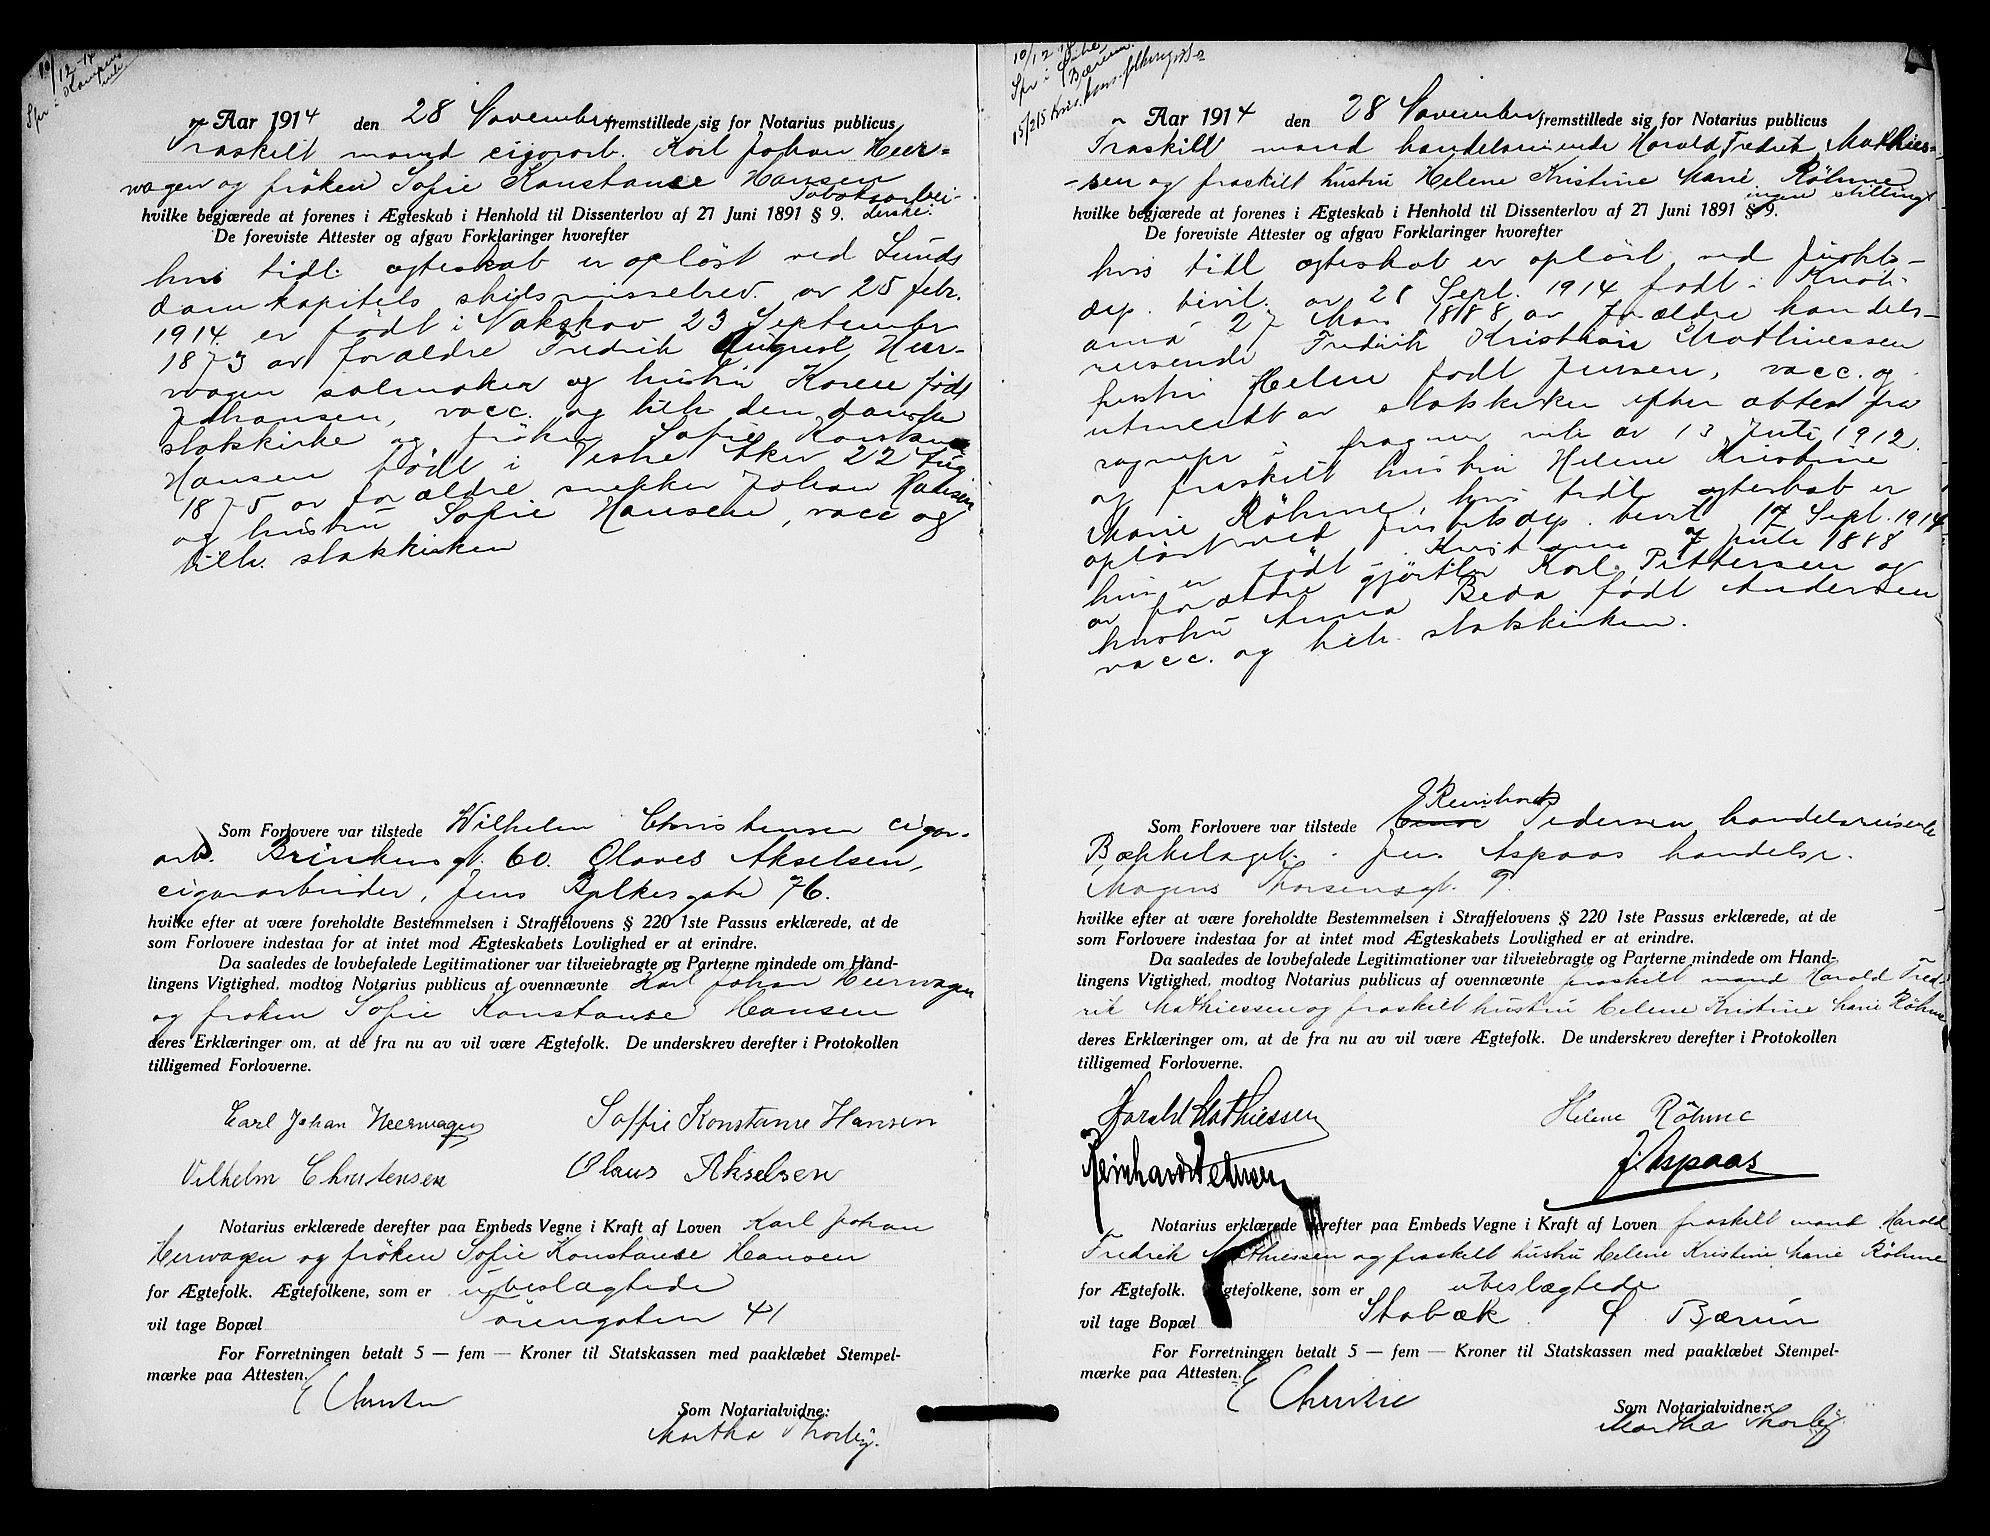 10/12-14
Spr i Kampens
Aar 1914 den 28 November fremstillede sig for Notarius publicus
Fraskilt mand cigararb. Karl Johan Heer-
wagen og frøken Sofie Konstanse Hansen
Tobaksarbei-
hvilke begjærede at forenes i Ægteskab i Henhold til Dissenterlov af 27 Juni 1891 § 9. derske.
De foreviste Attester og afgav Forklaringer hvorefter
hvis tidl. egteskab er opløst ved Lunds
domkapitels skilsmissebrev av 25 febr.
1914 er født i Nakskov 23 September
1873 av forældre Fredrik August Heer-
wagen salmaker og hustru Karen født
Johansen, vacc. og tilh. den danske
statskirke og frøken Sofie Konstanse
Hansen født i Vestre Aker 22 Aug
1875 av forældre snekker Johan Hansen
og hustru Sofie Hansen, vacc og
tilh. statskirken
Som Forlovere var tilstede Wilhelm Christensen cigar-
arb. Brinkens gt. 60. Olaves Akselsen,
cigararbeider, Jens Bjelkesgate 76.
hvilke efter at være foreholdte Bestemmelsen i Straffelovens § 220 1ste Passus erklærede, at de
som Forlovere indestaa for at intet mod Ægteskabets Lovlighed er at erindre.
Da saaledes de lovbefalede Legitimationer var tilveiebragte og Parterne mindede om Hand-
lingens Vigtighed, modtog Notarius publicus af ovennævnte Karl Johan Heerwagen
og frøken Sofie Konstanse Hansen
deres Erklæringer om, at de fra nu av vil være Ægtefolk. De underskrev derefter i Protokollen
tilligemed Forloverne.
Carl Johan Heerwagen Soffie Konstanse Hansen
Vilhelm Christensen Olaus Akselsen
Notarius erklærede derefter paa Embeds Vegne i Kraft af Loven Karl Johan
Heerwagen og frøken Sofie Konstanse Hansen
for Ægtefolk. Ægtefolkene, som er ubeslægtede
vil tage Bopæl Tøiengaten 41
For Forretningen betalt 5 — fem — Kroner til Statskassen med paaklæbet Stempel-
mærke paa Attesten.
E Christie
Som Notarialvidne:
Martha Thorbjg.
10/12 14
Spr i
Bærum.
15/2 15 folkeregist
Aar 1914 den 28 November fremstillede sig for Notarius publicus
Fraskilt mand handelsreisende Harald Fredrik Mathies-
-sen og fraskilt hustru Helene Kristine Marie Röhme
ingen stilling
hvilke begjærede at forenes i Ægteskab i Henhold til Dissenterlov af 27 Juni 1891 § 9.
De foreviste Attester og afgav Forklaringer hvorefter
hvis tidl egteskab er opløst ved Justits-
dep. bevil. av 21 Sept. 1914 født i Kristi-
ania 27 Mai 1888 av forældre handels-
reisende Fredrik Kristian Mathiessen
hustru Helene født Jensen, vacc. og
utmeldt av statskirken efter attest fra
sognepr i Frogner mh av 13 Juli 1912.
og fraskilt hustru Helene Kristine
Marie Röhme, hvis tidl. egteskab er
opløst ved justitsdep. bevil 17 Sept. 1914
hun er født i Kristiania 7 Juli 1888
av forældre gjørtler Karl Pettersen og
hustru Anna Beda født Andersen
vacc. og tilh. statskirken.
Reinhardt
Som Forlovere var tilstede Einar Pedersen handelsreisende
Bækkelaget. Jens Aspaas handelsr.
Magnus Thorsensgt. 7.
hvilke efter at være foreholdte Bestemmelsen i Straffelovens § 220 1ste Passus erklærede, at de
som Forlovere indestaa for at intet mod Ægteskabets Lovlighed er at erindre.
Da saaledes de lovbefalede Legitimationer var tilveiebragte og Parterne mindede om Hand-
lingens Vigtighed, modtog Notarius publicus af ovennævnte fraskilt mand Harald Fred-
rik Mathiessen og fraskilt hustru Helene Kristine Marie Röhme
deres Erklæringer om, at de fra nu av vil være Ægtefolk. De underskrev derefter i Protokollen
tilligemed Forloverne.
Harald Mathiessen Helene Röhme
Reinhardt Pedersen J. Aspaas
Notarius erklærede derefter paa Embeds Vegne i Kraft af Loven fraskilt mand Harald
Fredrik Mathiessen og fraskilt hustru Helene Kristine Marie Röhme
for Ægtefolk. Ægtefolkene, som er ubeslægtede
vil tage Bopæl Stabæk i Bærum
For Forretningen betalt 5 — fem — Kroner til Statskassen med paaklæbet Stempel-
mærke paa Attesten.
E Christie
Som Notarialvidne:
Martha Thorbjg.